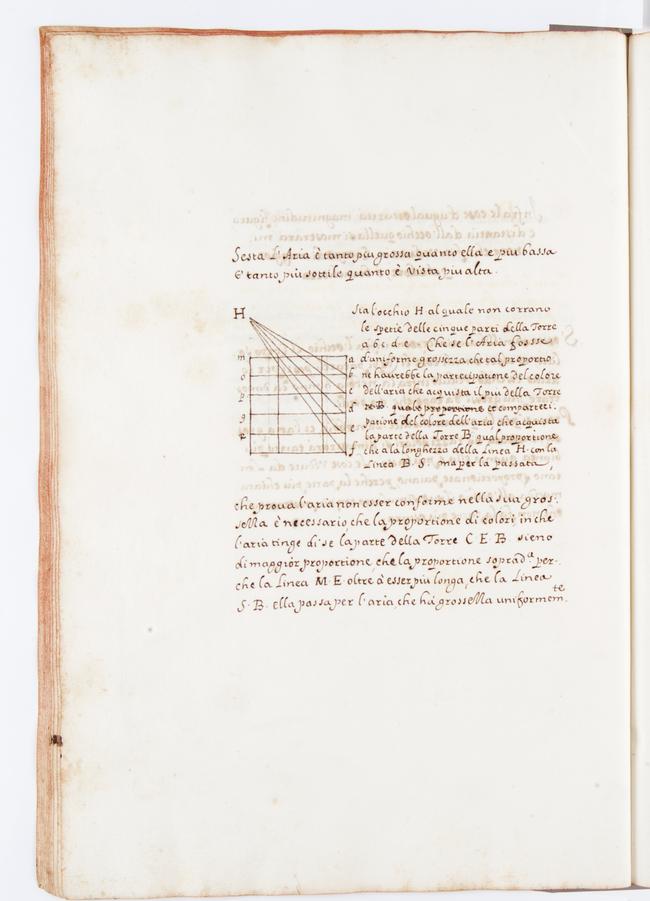 Sesta L'Aria è tanto piu grossa quanto ella e piu bassa
E' tanto più sottile quanto è vista piu alta.
H
m
o
p
q
R
a
b
c
d
e
f
Sia l'occhio H al quale non corrano
le spetie delle cinque parti della Torre
a b c d e Che se l'Aria fossse
d'uniforme grossezza che tal proportio:
ne haurebbe la partecipatione del colore
dell'aria che acquista il piu della Torre
re B. quale proportione et comparteci:
patione del colore dell'aria che acquista
la parte della Torre B qual proportione
che a la longhezza della Linea H. con la
Linea B. S. ma per la passata,
che proua l'aria non esser conforme nella sua gros:
sezza è necessario, che la proportione di colori, in che
l'aria tinge di se la parte della Torre C E B sieno
di maggior proportione, che la proportione soprad.ª per:
che la Linea M. E oltre à esser più longa, che la Linea
S. B. ella passa per l'aria, che há grossezza uniformem.te